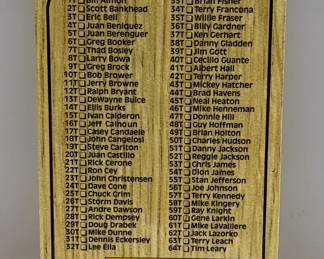 1T Bill Almon
2T Scott Bankhead
3T Eric Bell
4T Juan Beniquez
5T Juan Berenguer
6T Greg Booker
7T Thad Bosley
8T Larry Bowa
9T Greg Brock
10T Bob Brower
11T Jerry Browne
12T Ralph Bryant
13T DeWayne Buice
14T Ellis Burks
15T Ivan Calderon
16T Jeff Calhoun
17T Casey Candaele
18T John Cangelosi
19T Steve Carlton
20T Juan Castillo
21T Rick Cerone
22T Ron Cey
23T John Christensen
24T Dave Cone
25T Chuck Crim
26T Storm Davis
27T Andre Dawson
28T Rick Dempsey
29T Doug Drabek
30T Mike Dunne
31T Dennis Eckersley
32T Lee Elia
33T Brian Fisher
34T Terry Francona
35T Willie Fraser
36T Billy Gardner
37T Ken Gerhart
38T Danny Gladden
39T Jim Gott
40T Cecilio Guante
41T Albert Hall
42T Terry Harper
43T Mickey Hatcher
44T Brad Havens
45T Neal Heaton
46T Mike Henneman
47T Donnie Hill
48T Guy Hoffman
49T Brian Holton
50T Charles Hudson
51T Danny Jackson
52T Reggie Jackson
53T Chris James
54T Dion James
55T Stan Jefferson
56T Joe Johnson
57T Terry Kennedy
58T Mike Kingery
59T Ray Knight
60T Gene Larkin
61T Mike Lavalliere
62T Jack Lazorko
63T Terry Leach
64T Tim Leary